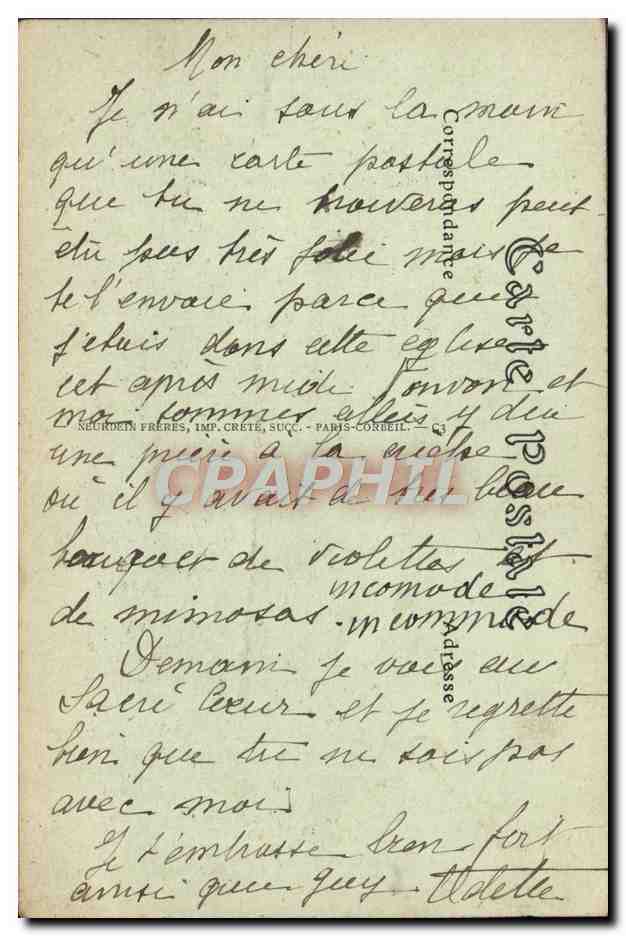 Mon chéri
Je n'ai sous la main
qu'une carte postale
que tu ne trouveras peut-
être pas très jolie mais je
te l'envoie parce que
j'étais dans cette eglise
cet après midi Tonvon et
moi sommes allées y dire
NEURDEIN FRÈRES, IMP. CRÉTÉ, SUCC. - PARIS-CORBEIL. — C3
une prière à la crèche
où il y avait de très beau
bouquet de violettes et
de mimosas.
incomode
incommode
Demain je vais au
Sacré Cœur et je regrette
bien que tu ne sois pas
avec moi
Je t'embrasse bien fort
ainsi que Guy Odette
Correspondance
Carte postale
Adresse
CPAPHIL